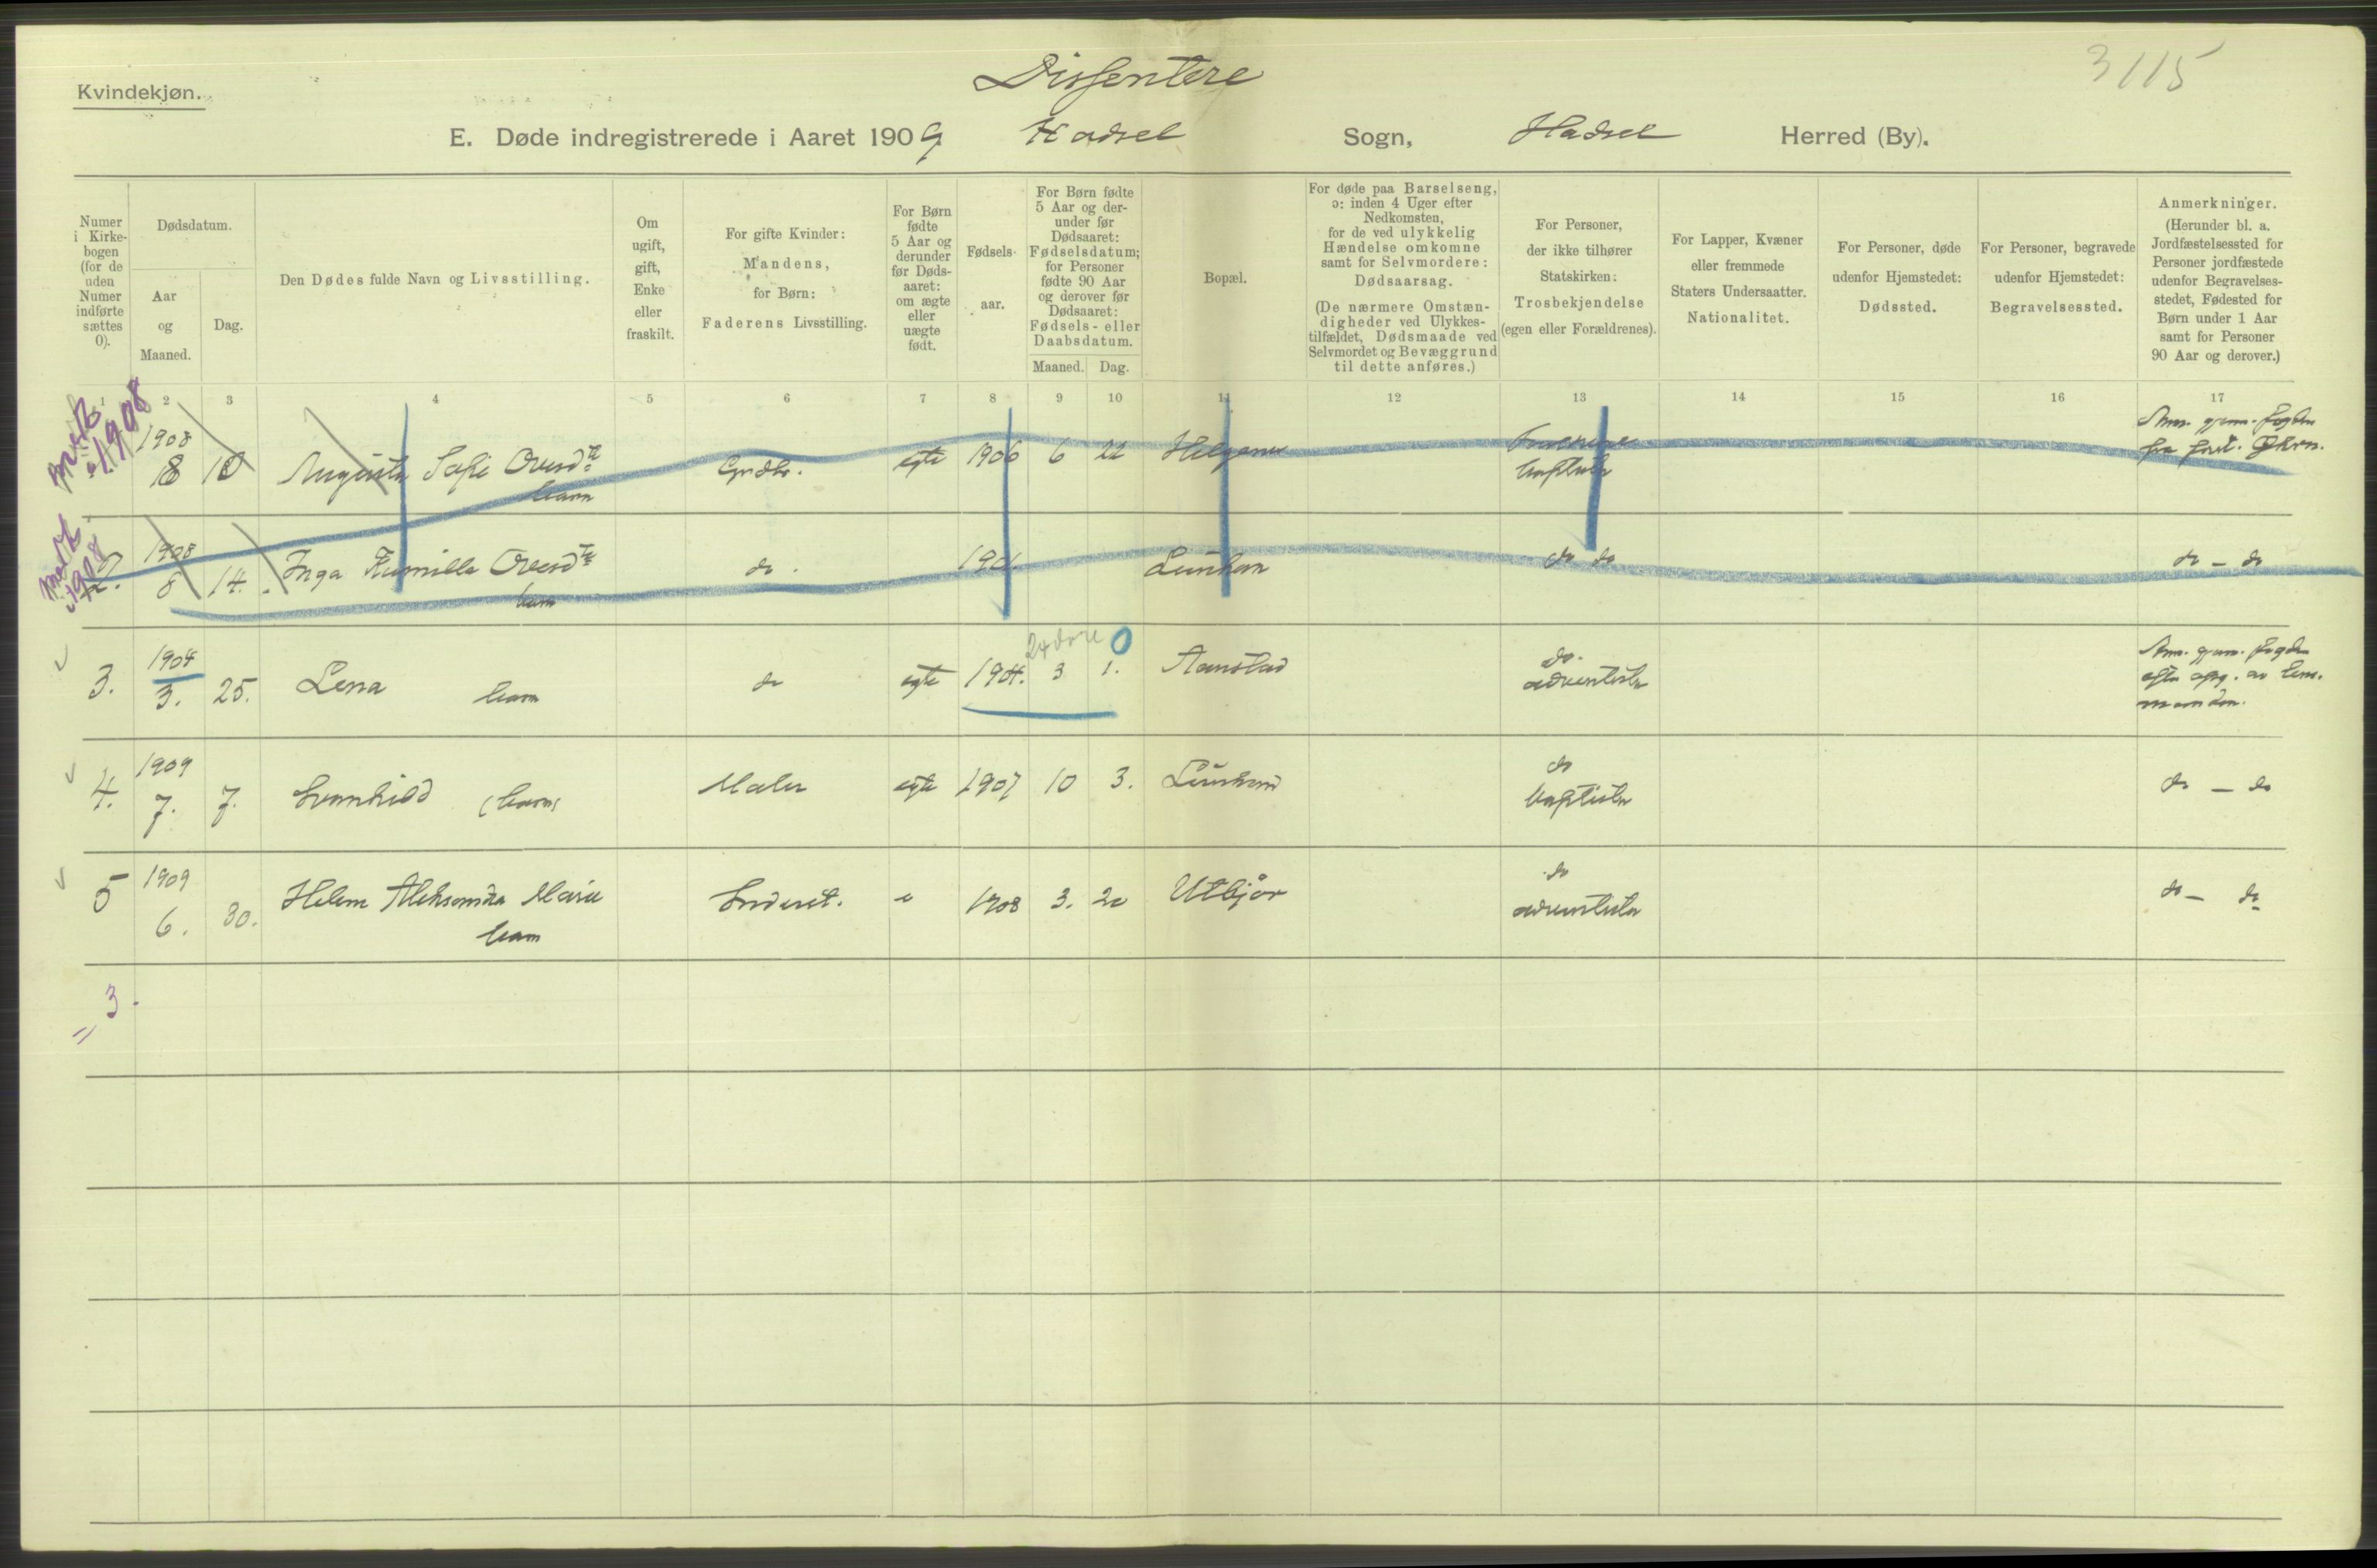 Kvindekjøn.
Dissentere
3115
E. Døde indregistrerede i Aaret 1909 Hadsel Sogn, Hadsel Herred (By).
Numer i Kirkebogen (for de uden Numer indførte sættes 0).
Dødsdatum.
Aar og Maaned.
Dag.
Den Dødes fulde Navn og Livsstilling.
Om ugift, gift, Enke eller fraskilt.
For gifte Kvinder: Mandens, for Børn: Faderens Livsstilling.
For Børn fødte 5 Aar og derunder før Dødsaaret: om ægte eller uægte født.
Fødselsaar.
For Børn fødte 5 Aar og derunder før Dødsaaret: Fødselsdatum; for Personer fødte 90 Aar og derover før Dødsaaret: Fødsels- eller Daabsdatum.
Maaned. Dag.
Bopæl.
For døde paa Barselseng, ɔ: inden 4 Uger efter Nedkomsten, for de ved ulykkelig Hændelse omkomne samt for Selvmordere: Dødsaarsag.
(De nærmere Omstændigheder ved Ulykkestilfældet, Dødsmaade ved Selvmordet og Bevæggrund til dette anføres.)
For Personer, der ikke tilhører Statskirken: Trosbekjendelse (egen eller Forældrenes).
For Lapper, Kvæner eller fremmede Staters Undersaatter. Nationalitet.
For Personer, døde udenfor Hjemstedet: Dødssted.
For Personer, begravede udenfor Hjemstedet: Begravelsessted.
Anmerkninger.
(Herunder bl. a. Jordfæstelsessted for Personer jordfæstede udenfor Begravelsesstedet, Fødested for Børn under 1 Aar samt for Personer 90 Aar og derover.)
1 2 3 4 5 6 7 8 9 10 11 12 13 14 15 16 17
1908
1908 8 10 Augusta Sofie Ovesdtr barn Grdbr. egte 1906 6 22 baptister Anm. gjenn. fogden
1908
2. 1908 8 14. Inga Ovesdtr barn do. do do do - do
3. 1904 3. 25. Lena barn do egte 1904. 3 1. 0 Aanstad do. adventister Anm. gjenn. fogden efter opg. av lensmanden.
4. 1909 7. 7. Svanhild (barn) Maler egte 1907 10 3. do baptister do - do
5 1909 6. 30. Helene Aleksandra Marie barn Inderst. 1908 3. 20 Utbjør do adventister do - do
= 3.